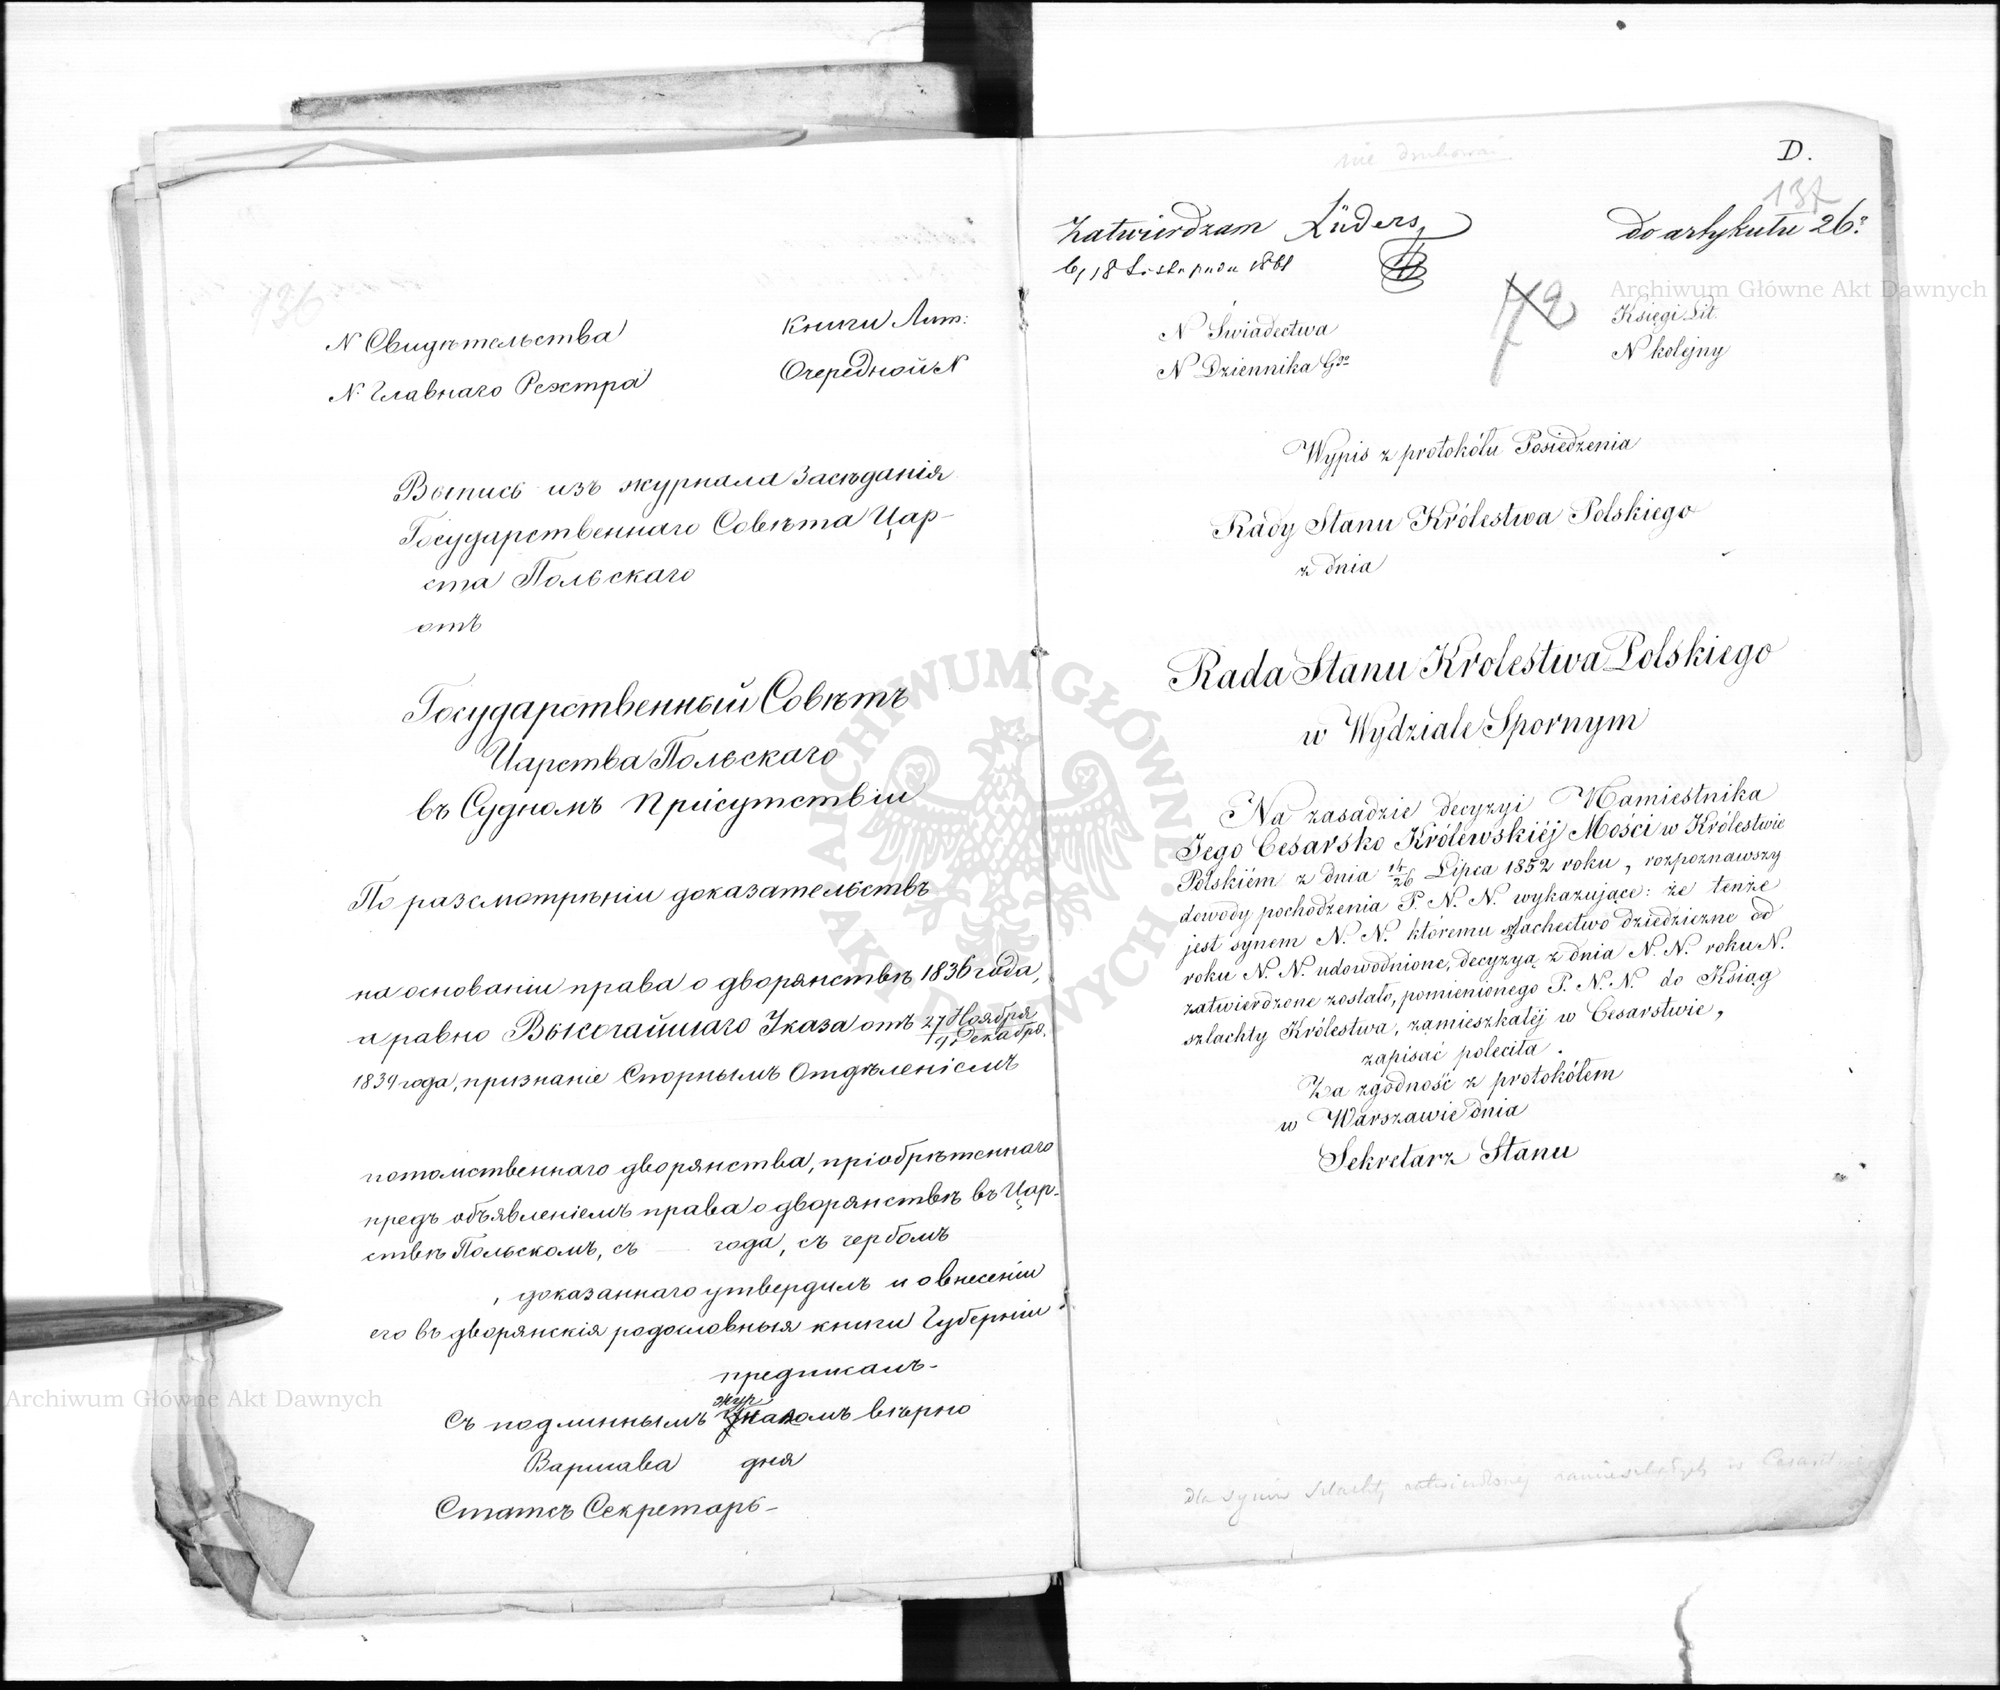 N Свидѣтельства
Книги Лит:
N Главнаго Реэстра
Очередной N
Выпись изъ журнала Засѣданія
Государственнаго Совѣта Цар-
ста Польскаго
отъ
Государственный Совѣтъ
Царства Польскаго
въ Судномъ Присутствіи
По разсмотрѣніи доказательствъ
на основаніи права о дворянствѣ 1836 года,
а равно Высочайшаго Указа отъ 27 Ноября / 9 Декабря
1839 года, признаніе Спорнымъ Отдѣленіемъ
потомственнаго дворянства, пріобрѣтеннаго
предъ объявленіемъ права о дворянствѣ въ Цар-
ствѣ Польскомъ, съ года, съ гербомъ
, доказаннаго утвердилъ и о внесеніи
его въ дворянскія родословныя книги Губерніи
предписалъ-
жур
Съ подлиннымъ вѣрно
Варшава дня
Статсъ Секретарь-
nie drukować
D.
137
Zatwierdzam Lüders
do artykułu 26º
6/18 Listopada 1861
72
N Świadectwa
Księgi Lit.
N Dziennika Ggo
N kolejny
Wypis z protokółu Posiedzenia
Rady Stanu Królestwa Polskiego
z dnia
Rada Stanu Królestwa Polskiego
w Wydziale Spornym
Na zasadzie decyzyi Namiestnika
Jego Cesarsko Królewskiéj Mości w Królestwie
Polskiém z dnia 14/26 Lipca 1852 roku, rozpoznawszy
dowody pochodzenia P. N. N. wykazujące: że tenże
jest synem N. N. któremu szlachectwo dziedziczne od
roku N. N. udowodnione, decyzyą z dnia N. N. roku N.
zatwierdzone zostało, pomienionego P. N. N. do Ksiąg
szlachty Królestwa, zamieszkałéj w Cesarstwie,
zapisać poleciła.
Za zgodność z protokółem
w Warszawie dnia
Sekretarz Stanu
dla synów szlachty zatwierdzonej zamieszkałych w Cesarstwie
Archiwum Główne Akt Dawnych
Archiwum Główne Akt Dawnych
ARCHIWUM GŁÓWNE AKT DAWNYCH